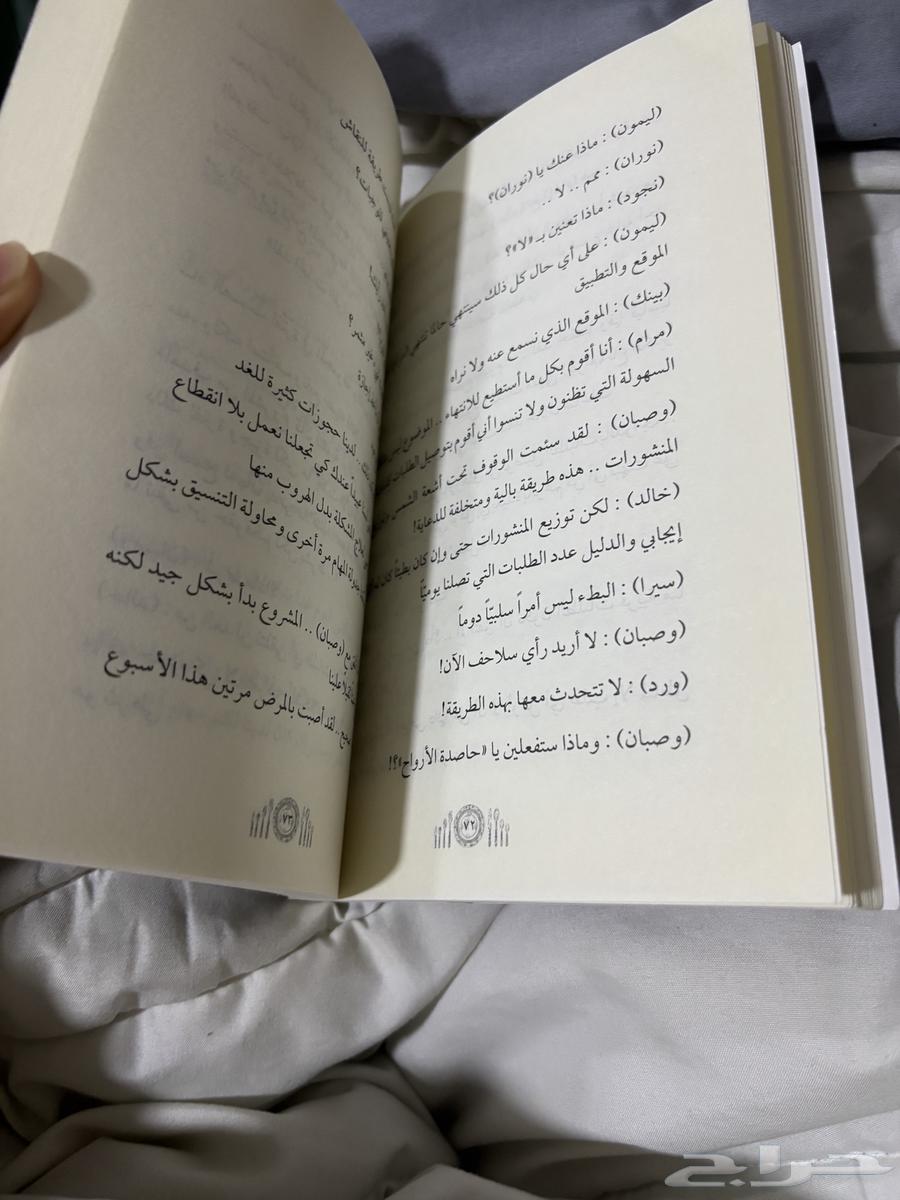 (ليمون) : ماذا عنك يا (نوران)؟
(نوران) : ممم .. لا ..
(نجود) : ماذا تعنين بـ «لا»؟
(ليمون) : على أي حال كل ذلك سينتهي حالما ننتهي
الموقع والتطبيق
(بينك) : الموقع الذي نسمع عنه ولا نراه
(مرام) : أنا أقوم بكل ما أستطيع للانتهاء .. الموضوع ليس
السهولة التي تظنون ولا تنسوا أني أقوم بتوصيل الطلبات
(وصبان) : لقد سئمت الوقوف تحت أشعة الشمس
المنشورات .. هذه طريقة بالية ومتخلفة للدعاية!
(خالد) : لكن توزيع المنشورات حتى وإن كان بطيئاً كان له
إيجابي والدليل عدد الطلبات التي تصلنا يوميّاً
(سيرا) : البطء ليس أمراً سلبيّاً دوماً
(وصبان) : لا أريد رأي سلاحف الآن!
(ورد) : لا تتحدث معها بهذه الطريقة!
(وصبان) : وماذا ستفعلين يا «حاصدة الأرواح»؟!
٧٢
طريقة للنقاش
مثمر؟
لدينا حجوزات كثيرة للغد
عندك كي تجعلنا نعمل بلا انقطاع
المشكلة بدل الهروب منها
المهام مرة أخرى ومحاولة التنسيق بشكل
مع (وصبان) .. المشروع بدأ بشكل جيد لكنه
علينا
.. لقد أصبت بالمرض مرتين هذا الأسبوع
٧٣
حراج